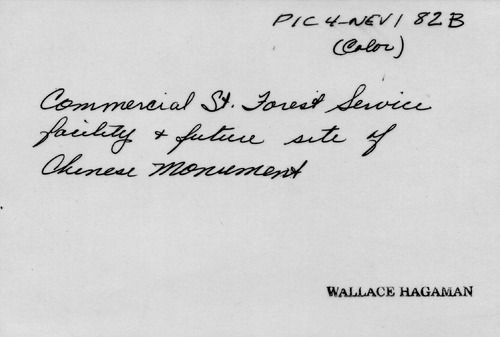 PIC 4-NEV1 82B
(Color)
Commercial St. Forest Service
facility + future site of
Chinese Monument
WALLACE HAGAMAN